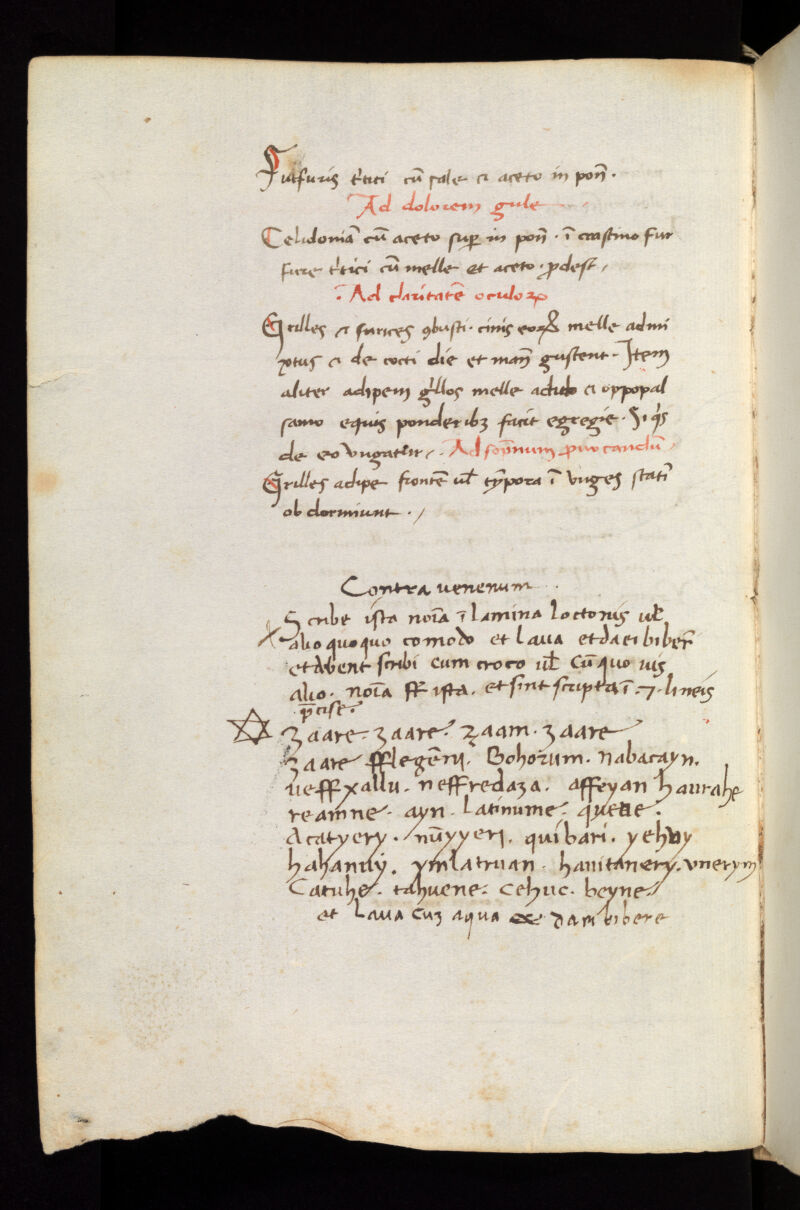 Furfuris t'tici cū sale et aceto in ponē.
Ad dolorem gule
Celidoniā cū aceto sup in ponē. ī crastino fur
fure t'tici cū melle et aceto. pdest
Ad claritatē oculoꝝ
Grilles et surices ꝯbusti. cinis eoꝝ melle admi
xtus et de cocti die et manē gustent. Item
aliter adipem g'llos melle et oppopal
samo equis ponderibꝫ facit egregie. Si q's
de eo ungatur. Ad somnum
Grilles adipe frontē ul' tympora ī unges statī
ob dormiunt.
Contra venenum
Scribe ista noīa ī lamina loctonis ul'
alio quoquo comodo et laua et da ei biberē
et debent scribi cum croco ul' cū quo uis
alio. noīa ista. et sint scripta ī .7. lineis
p̄cise.
Zaare. zaare. zaam. zaare
zaare fflegēni. Bohorum. nabacayn.
ueffxallu. neffredaza. affeyan haurahe
reamne. ayn. latinume. queue.
Acatyery. nūyyeri. quibari. yehuy
hahanuy. ymlatruan. hauitanery. vnerym
Catuhe. tahuene. cehuc. beyne
et laua cuꝫ aqua et da ei bibere